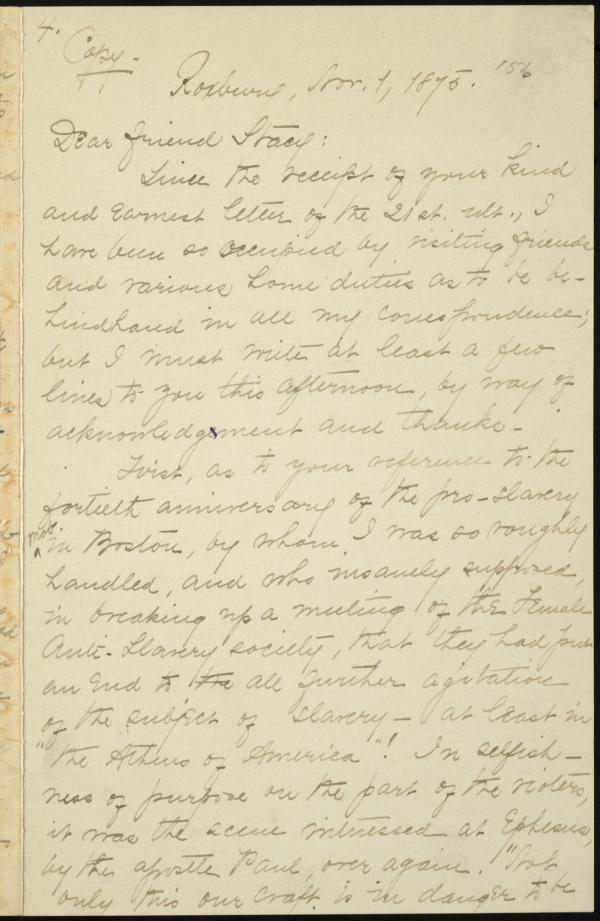 4.
Copy-
Roxbury, Nov. 1, 1875. 156
Dear friend Stacy:
Since the receipt of your kind
and earnest letter of the 21st. ult., I
have been so occupied by visiting friends
and various home duties as to be be-
hindhand in all my correspondence;
but I must write at least a few
lines to you this afternoon, by way of
acknowledgement and thanks-
First, as to your reference to the
fortieth anniversary of the pro-slavery
mob
in Boston, by whom I was so roughly
handled, and who insanely supposed,
in breaking up a meeting of the Female
Anti-Slavery society, that they had put
an end to the all further agitation
of the subject of slavery- at least in
"the Athens of America"! In selfish-
ness of purpose on the part of the rioters,
it was the scene witnessed at Ephesus,
by the apostle Paul, over again. "Not
only this our craft is in danger to be